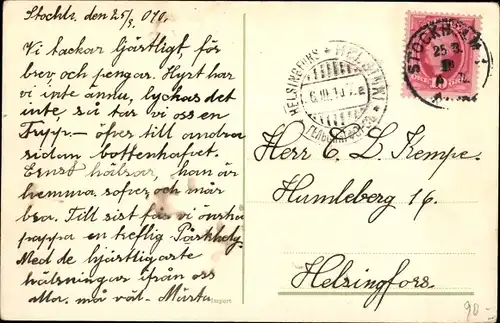 Stockh. den 25/3. 010.
Vi tackar hjärtligt för
brev och pengar. Hyrt har
vi inte ännu, lyckas det
inte så tar vi oss en
Tripp - öfver till andra
sidan bottenhafvet.
Ernst hälsar, han är
hemma, sofver och mår
bra. Till sist få vi önska
pappa en treflig Påskhelg
Med de hjärtligaste
hälsningar ifrån oss
alla. må väl - Märta
Import
HELSINGFORS * HELSINKI *
STOCKHOLM
25 3
10
Herr C. L. Kempe.
Humleberg 16.
Helsingfors.
90-